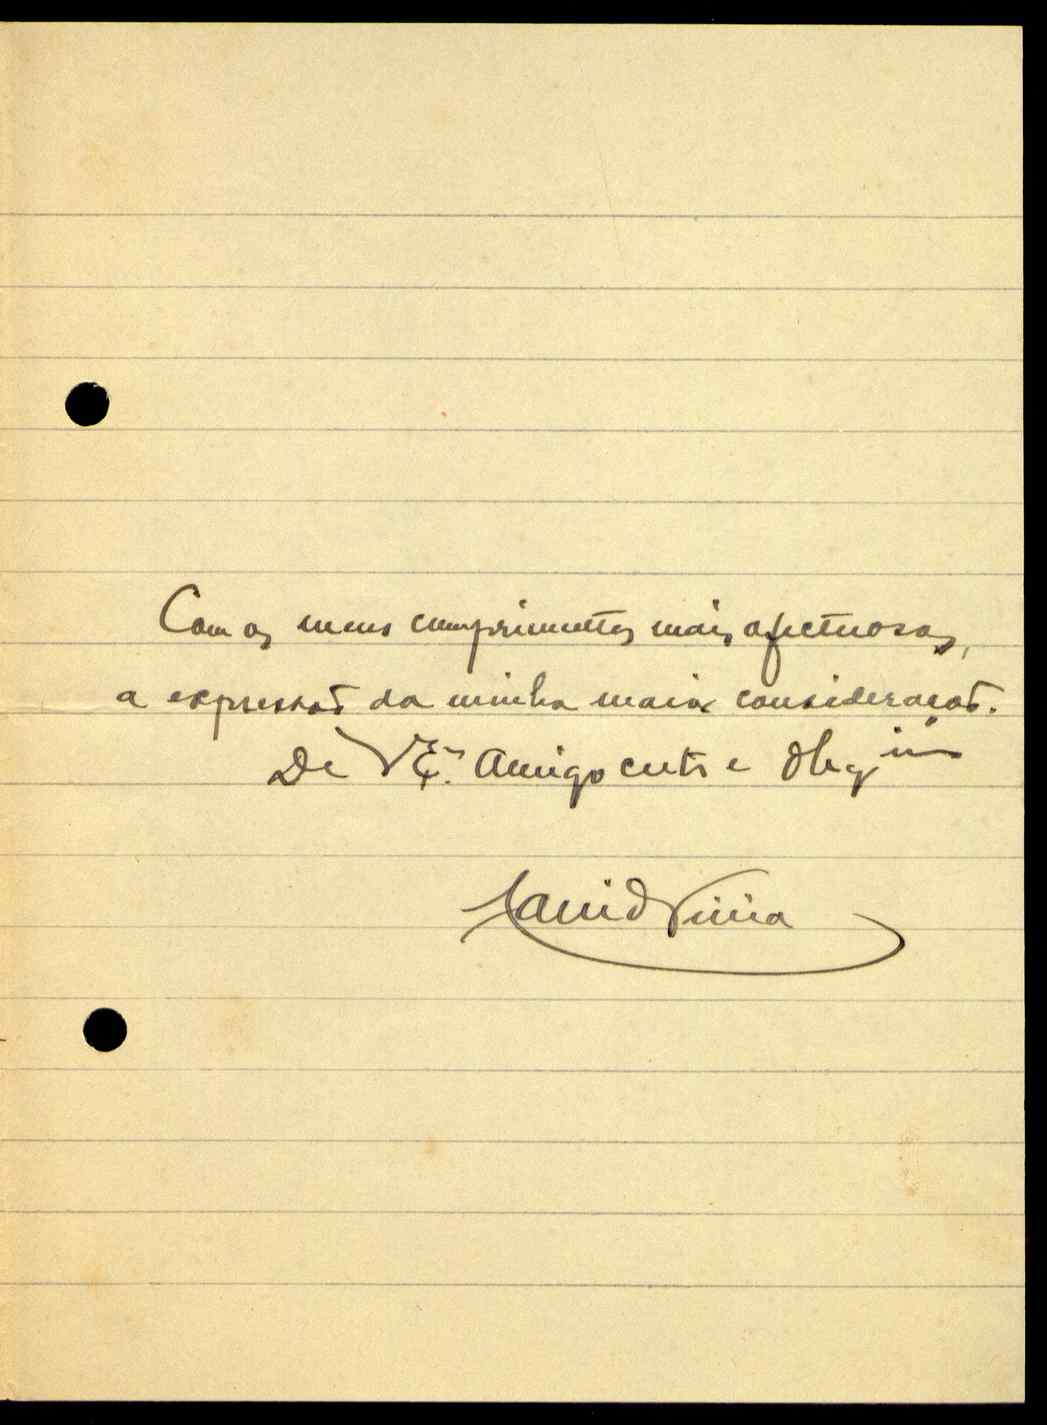 Com os meus cumprimentos mais afectuosos,
a expressão da minha maior consideração.
De V. Ex.ª Amigo certo e Obg.mo